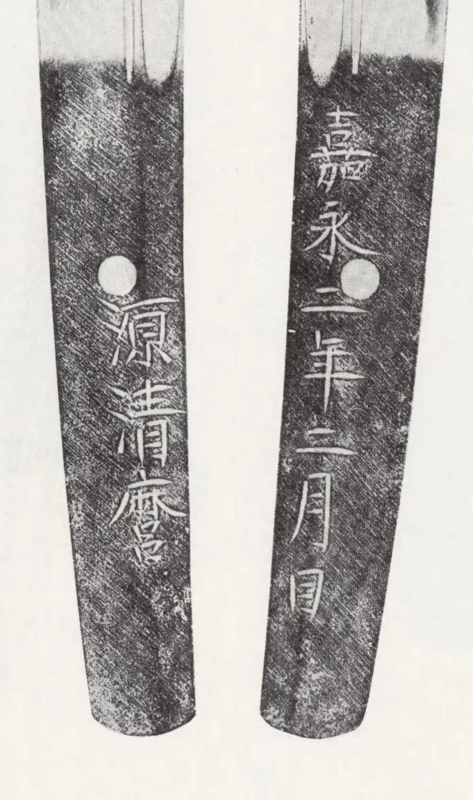 源清麿
嘉永二年二月日